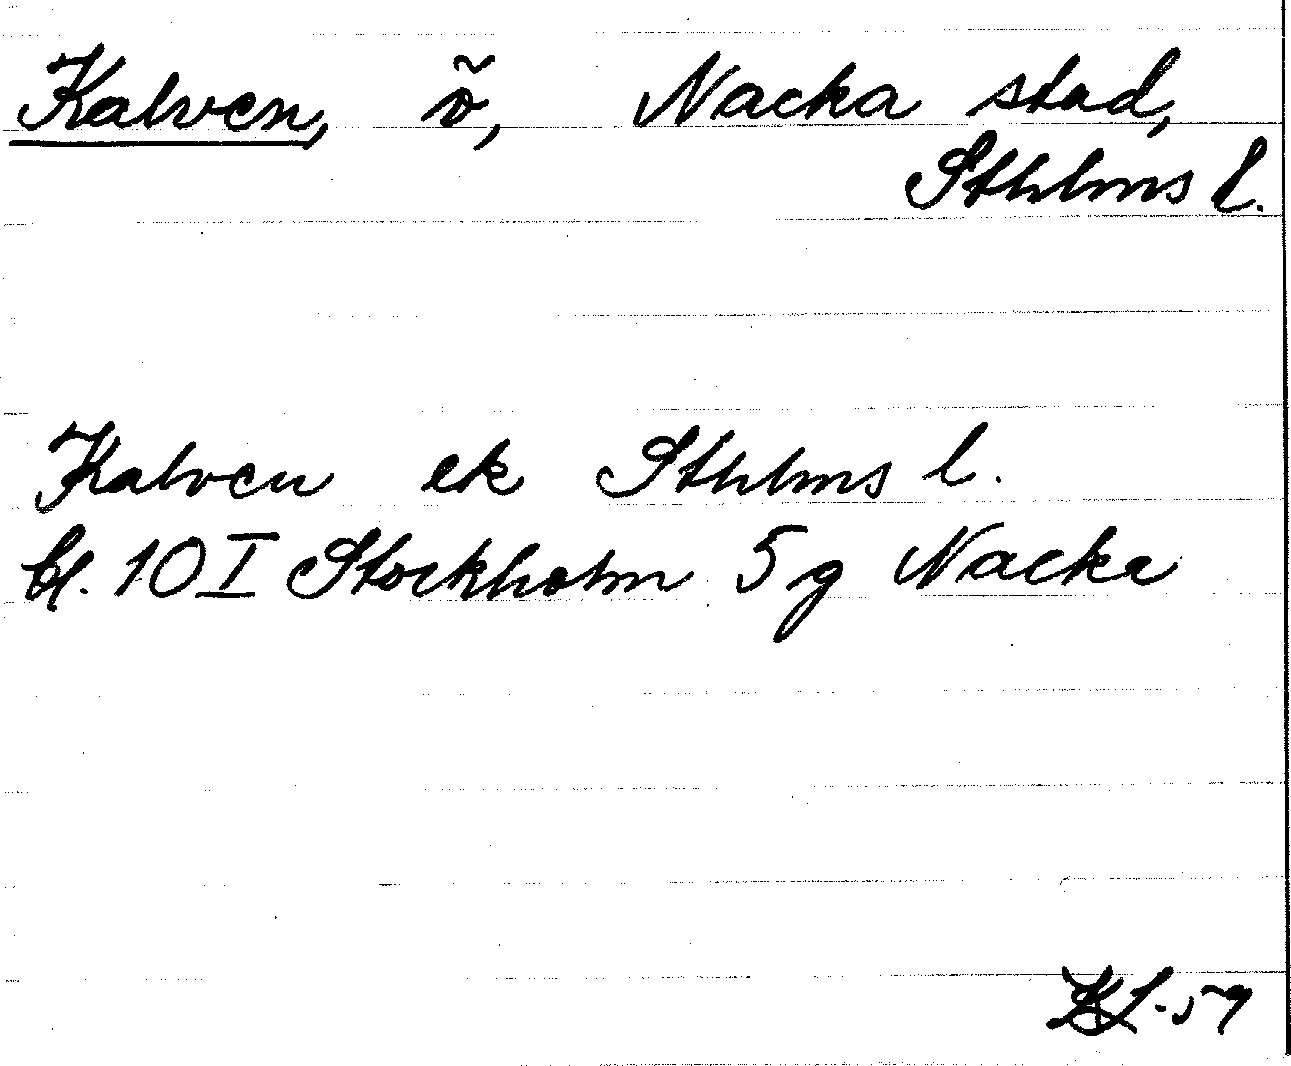 Kalven, ö, Nacka stad,
Sthlms l.
Kalven ek Sthlms l.
bl. 10 I Stockholm 5 g Nacka